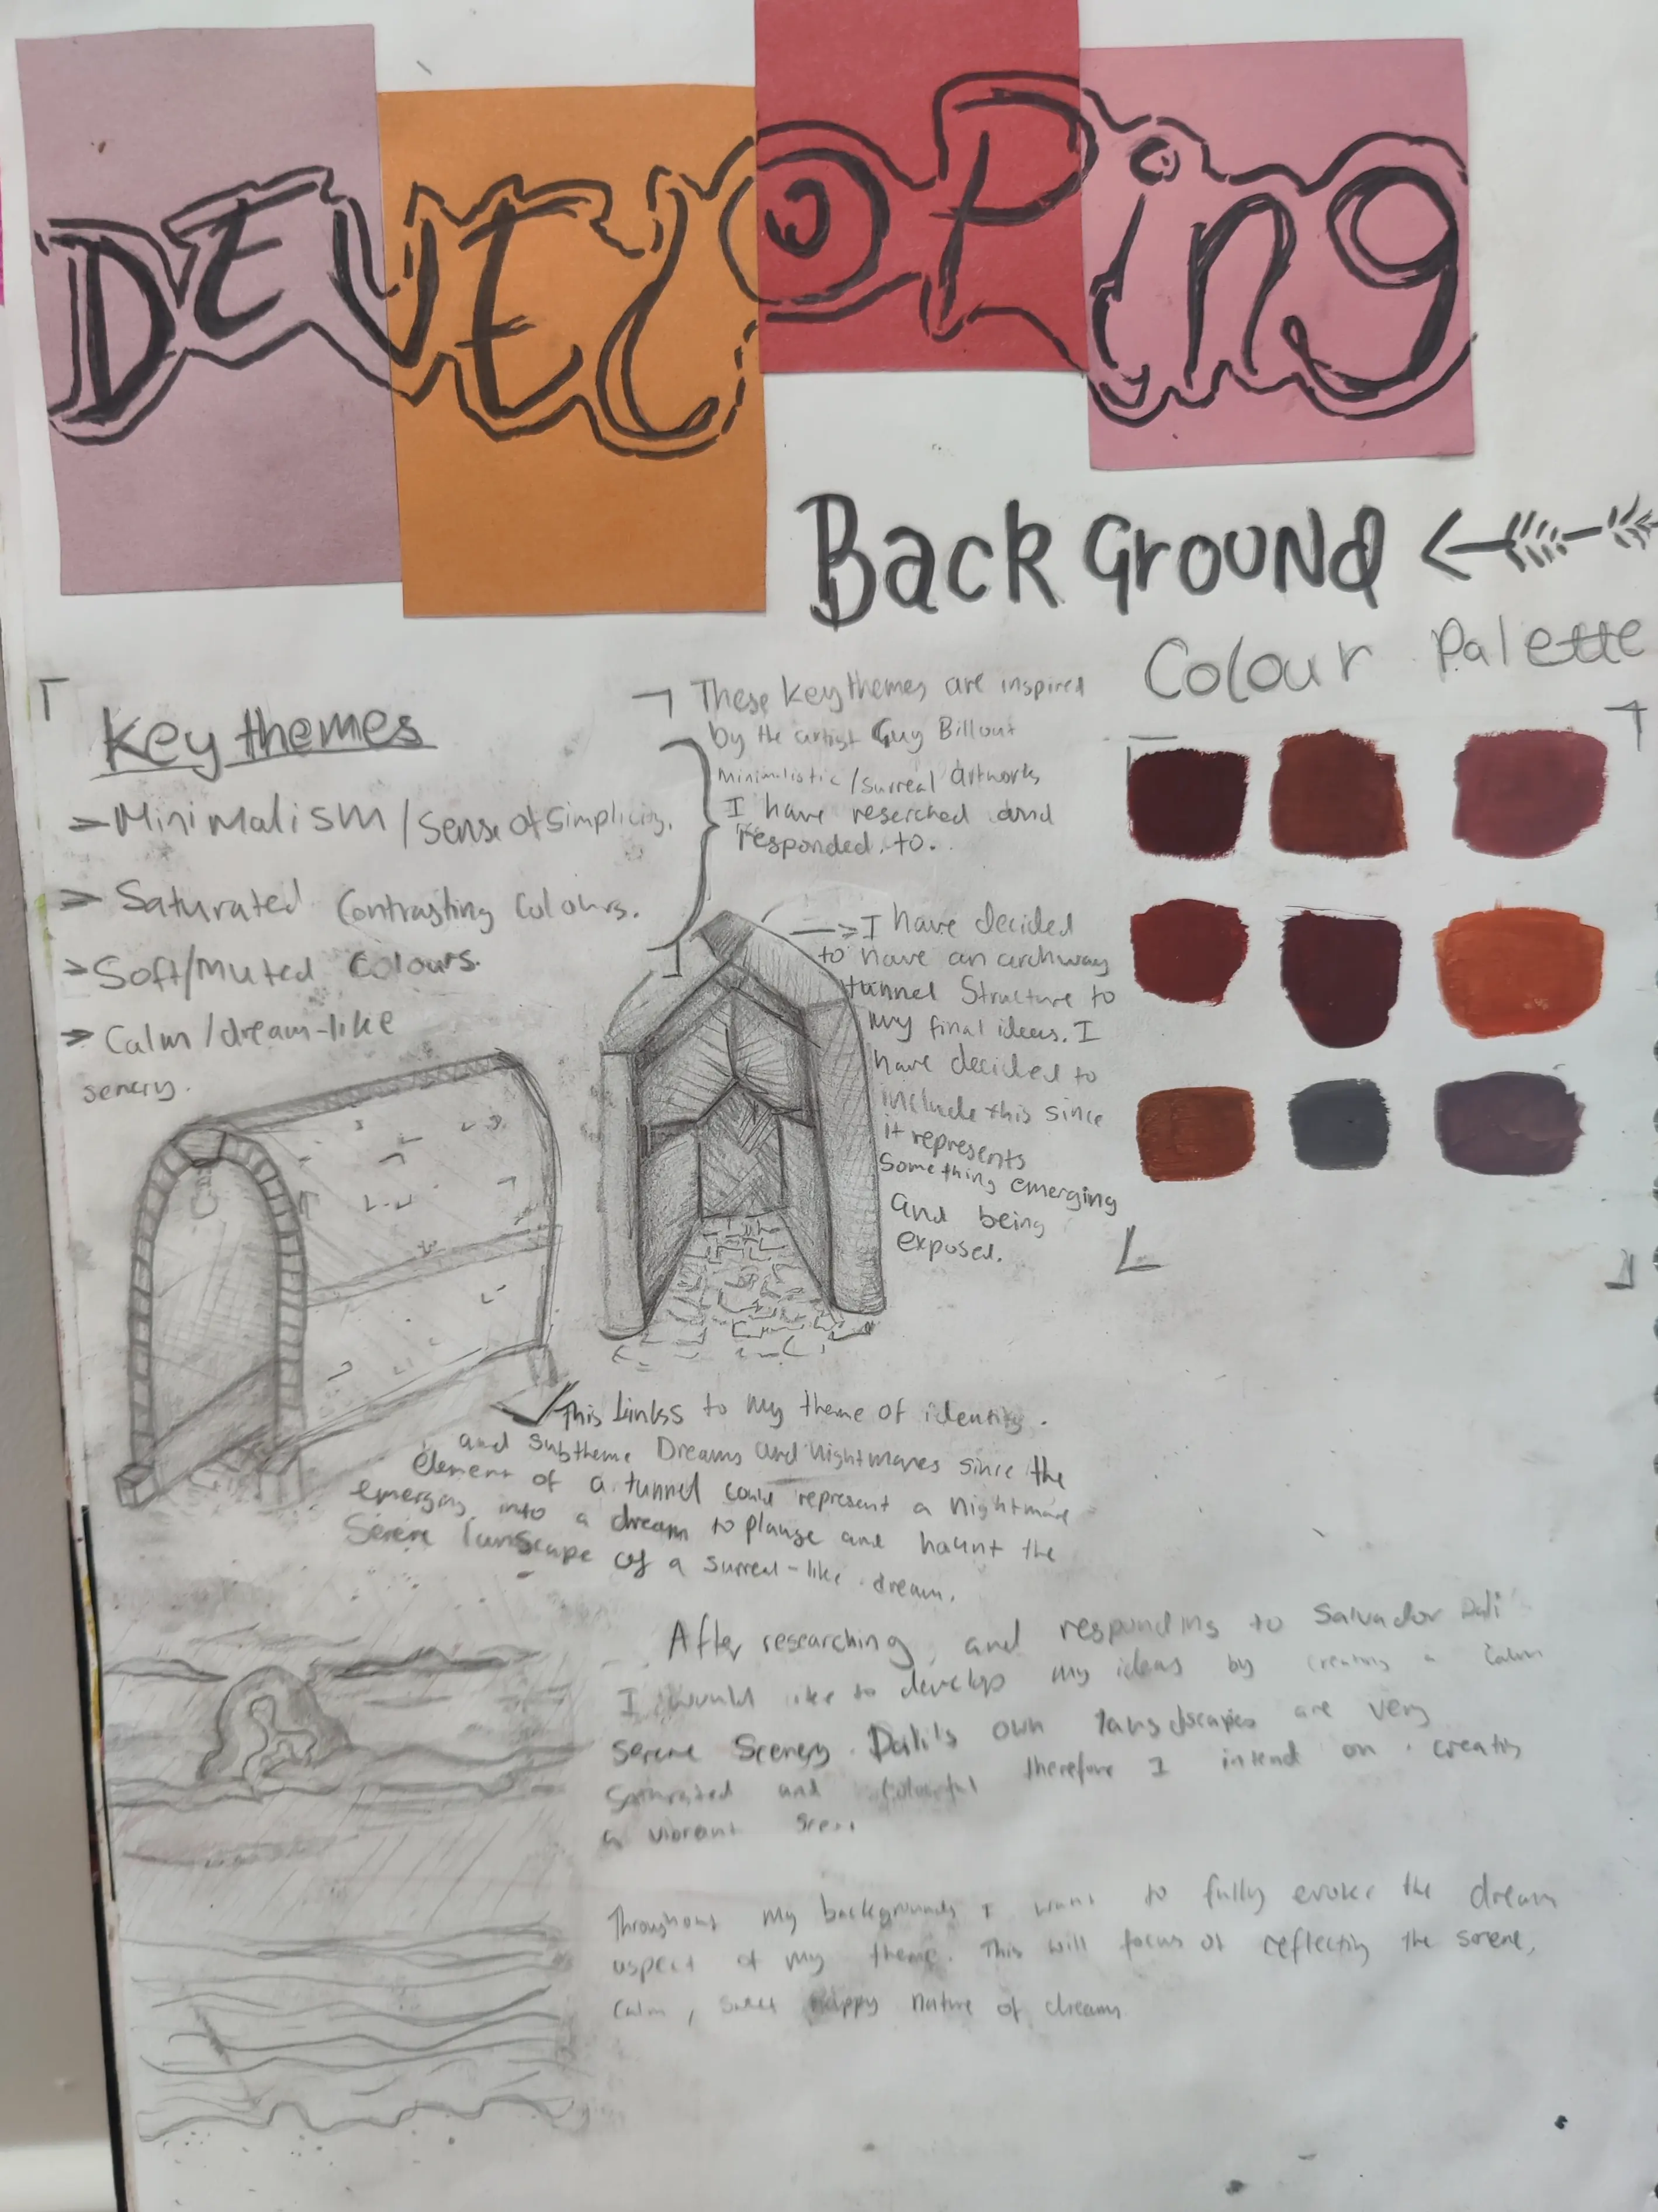 DEVELOPing
BacKGroUNd
Colour Palette
Key themes
Minimalism / Sense of Simplicity.
Saturated Contrasting Colours.
Soft/Muted Colours.
Calm / dream-like
senery.
These key themes are inspired
by the artist Guy Billout
Minimalistic / Surreal artworks
I have reserched and
responded to.
I have decided
to have an archway
tunnel Structure to
My final ideas. I
have decided to
include this since
it represents
Something emerging
and being
exposed.
This Links to my theme of identity.
and subtheme Dreams and Nightmares since the
element of a tunnel could represent a Nightmare
emerging into a dream to plauge and haunt the
Serene Lanscape of a surreal-like dream.
After researching and responding to Salvador Dali
I would like to develop my ideas by creating a calm
serene Scenery. Dali's own landscapes are very
Saturated and Colourful therefore I intend on creating
a vibrant
Throughout my backgrounds I want to fully evoke the dream
aspect of my theme. This will focus of reflecting the serene,
calm, happy nature of dreams